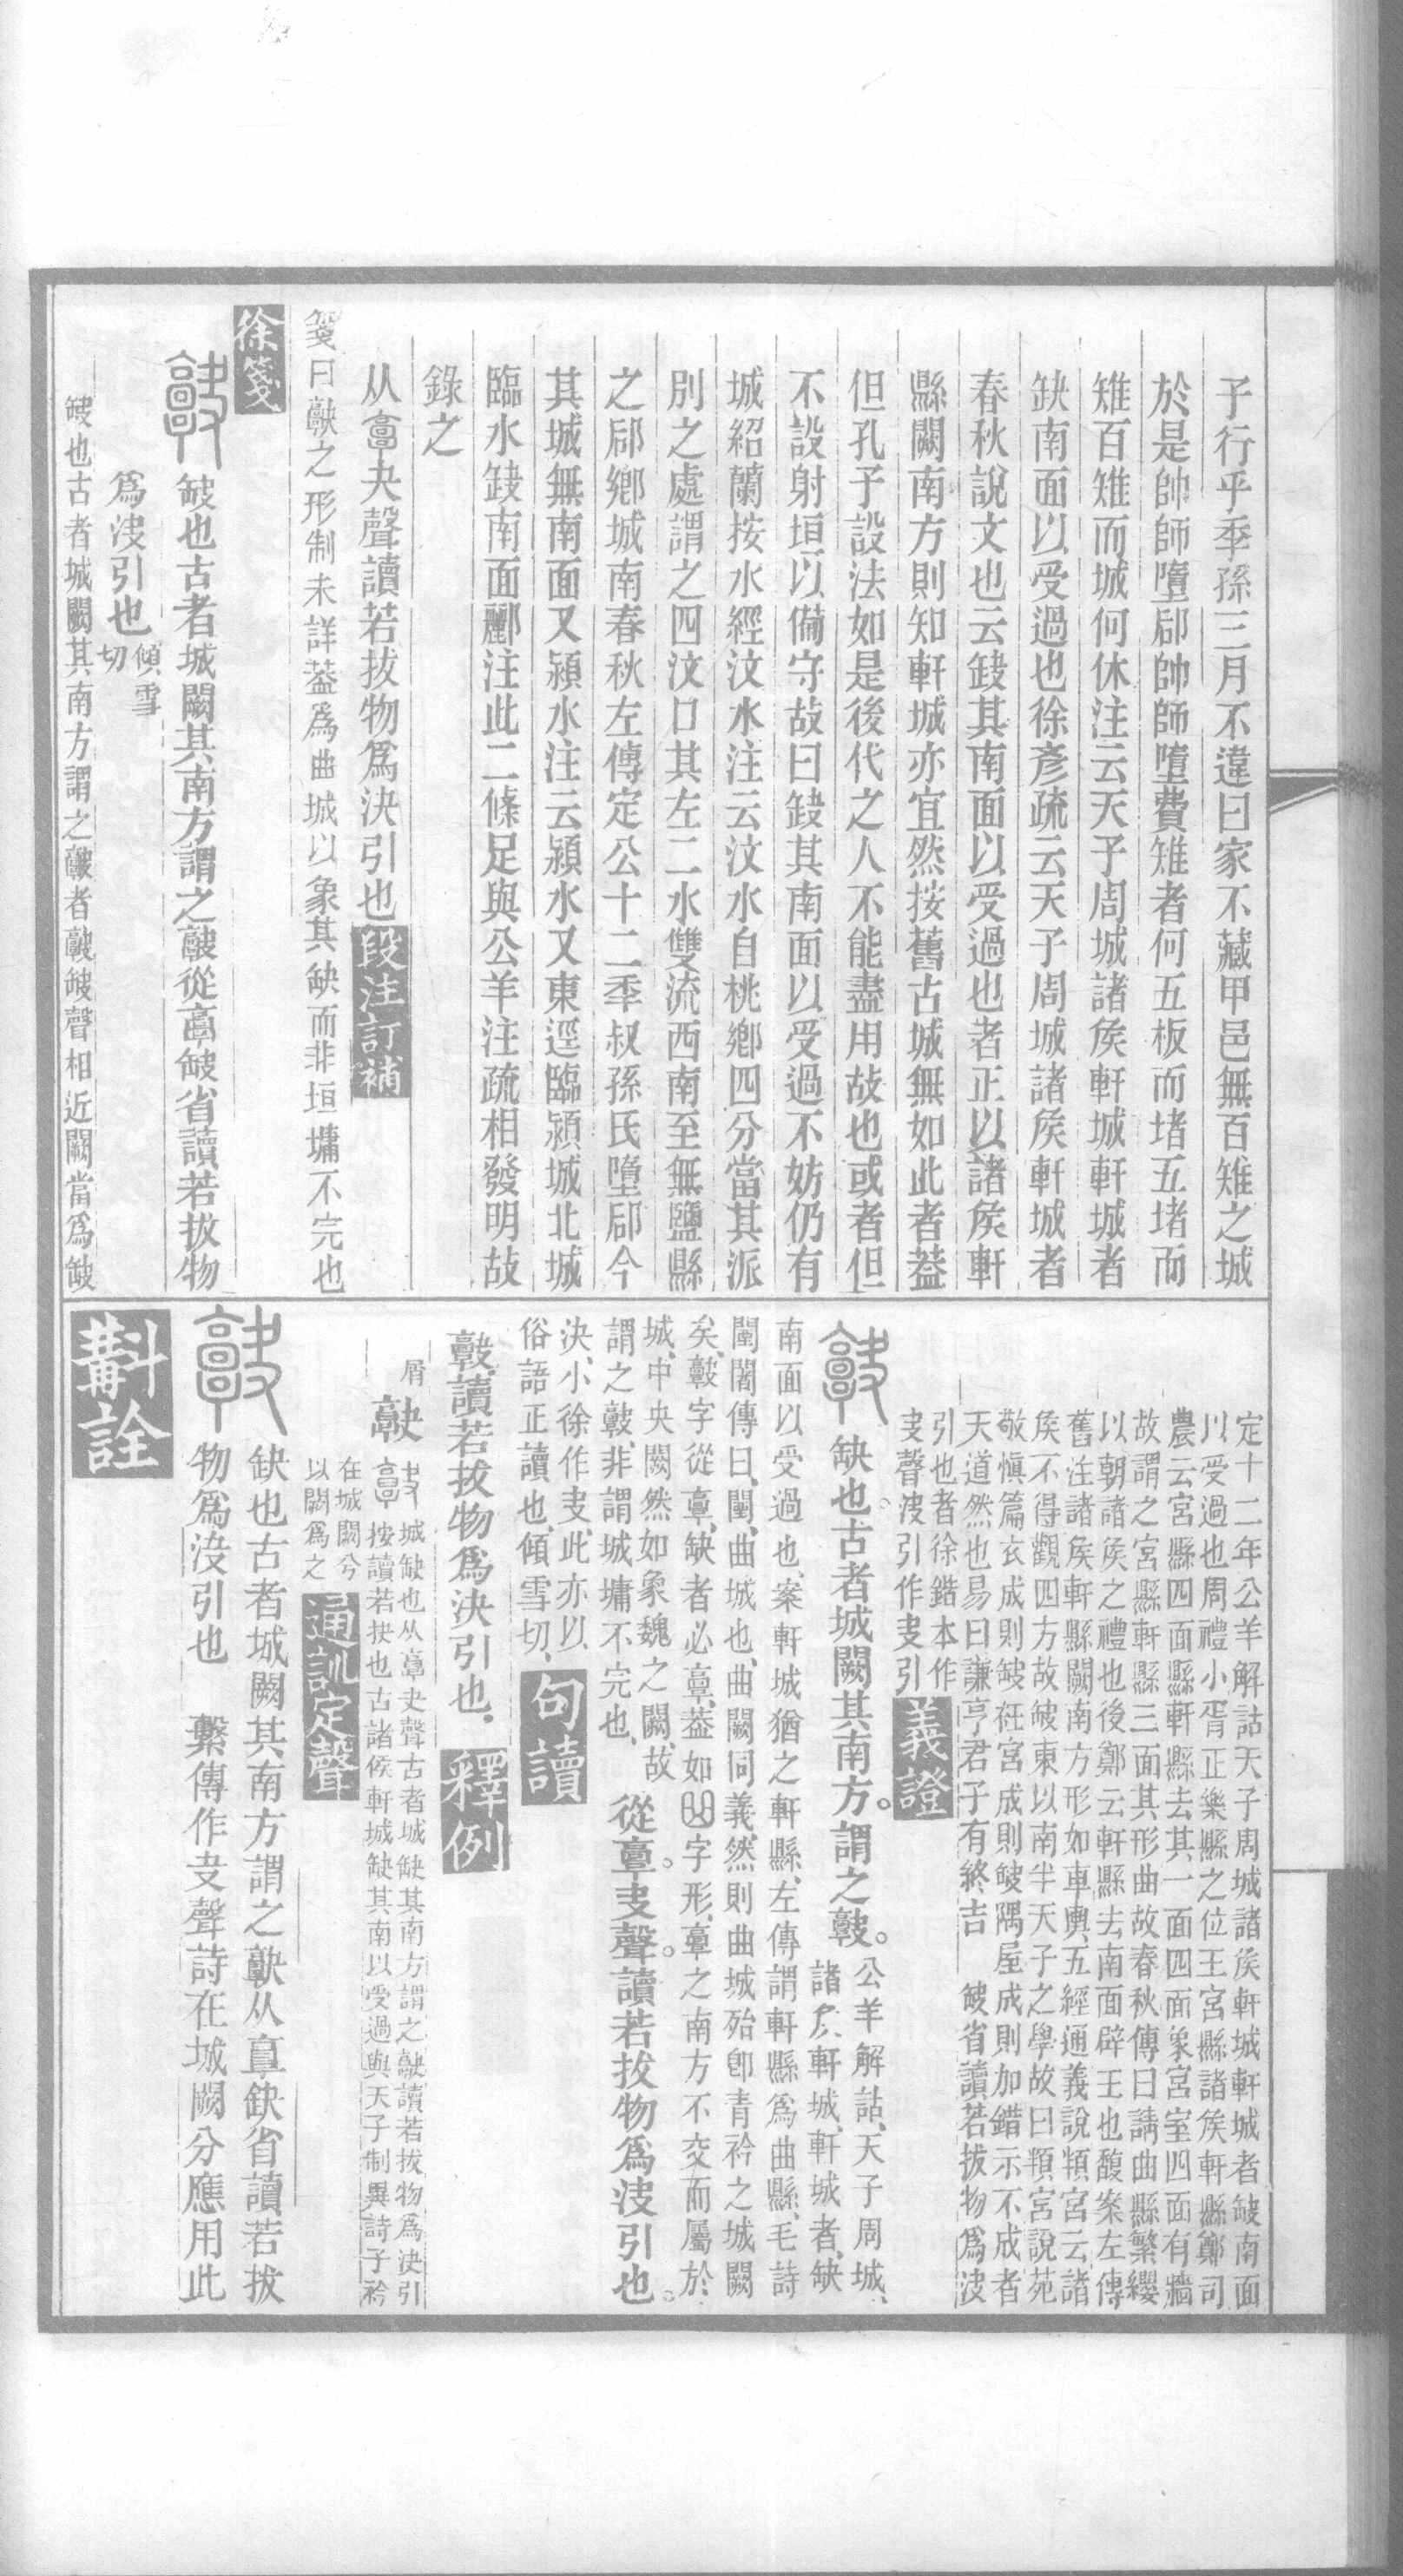 子行乎季孫三月不違曰家不藏甲邑無百雉之城
於是帥師墮郈帥師墮費雉者何五板而堵五堵而
雉百雉而城何休注云天子周城諸矦軒城軒城者
缺南面以受過也徐彥疏云天子周城諸矦軒城者
春秋說文也云䥽其南面以受過也者正以諸矦軒
縣闕南方則知軒城亦宜然按舊古城無如此者葢
但孔子設法如是後代之人不能盡用故也或者但
不設射垣以備守故曰䥽其南面以受過不妨仍有
城紹蘭按水經汶水注云汶水自桃鄉四分當其派
別之處謂之四汶口其左二水雙流西南至無鹽縣
之郈鄉城南春秋左傳定公十二秊叔孫氏墮郈今
其城無南面又潁水注云潁水又東逕臨潁城北城
臨水䥽南面酈注此二條足與公羊注疏相發明故
錄之
从𩫖夬聲讀若拔物爲決引也段注訂補
箋曰𩫏之形制未詳葢爲曲城以象其缺而非垣墉不完也
徐箋
缺也古者城闕其南方謂之𩫏從𩫖缺省讀若拔物
爲決引也傾雪切
缺也古者城闕其南方謂之𩫏者𩫏缺聲相近闕當爲缺
定十二年公羊解詁天子周城諸矦軒城軒城者缺南面
以受過也周禮小胥正樂縣之位王宮縣諸矦軒縣鄭司
農云宮縣四面縣軒縣去其一面四面象宮室四面有牆
故謂之宮縣軒縣三面其形曲故春秋傳曰請曲縣繁纓
以朝諸矦之禮也後鄭云軒縣去南面辟王也馥案左傳
舊注諸矦軒縣闕南方形如車輿五經通義說頖宮云諸
矦不得觀四方故缺東以南半天子之學故曰頖宮說苑
敬愼篇衣成則缺衽宮成則缺隅屋成則加錯示不成者
天道然也易曰謙亨君子有終吉 缺省讀若拔物爲決
引也者徐鍇本作
叏聲決引作叏引義證
缺也。古者城闕其南方。謂之𩫏。公羊解詁、天子周城、
諸矦軒城、軒城者、缺
南面以受過也、案軒城猶之軒縣、左傳謂軒縣爲曲縣、毛詩
闉闍傳曰、闉、曲城也、曲闕同義、然則曲城殆卽靑衿之城闕
矣、𩫏字從𩫖、缺者必𩫖、葢如字形、𩫖之南方不交而屬於
城、中央闕然如象魏之闕、故
謂之𩫏、非謂城墉不完也、從𩫖。叏聲。讀若拔物爲決引也。
決、小徐作叏、此亦以
俗語正讀也、傾雪切、句讀
𩫏、讀若拔物爲決引也、釋例
屑
𩫏城缺也从𩫖夬聲古者城缺其南方謂之𩫏讀若拔物爲決引
按讀若抉也古諸侯軒城缺其南以受過與天子制異詩子衿
在城闕兮
以闕爲之通訓定聲
缺也古者城闕其南方謂之𩫏从𩫖缺省讀若拔
物爲決引也 繫傳作叏聲詩在城闕兮應用此
斠詮